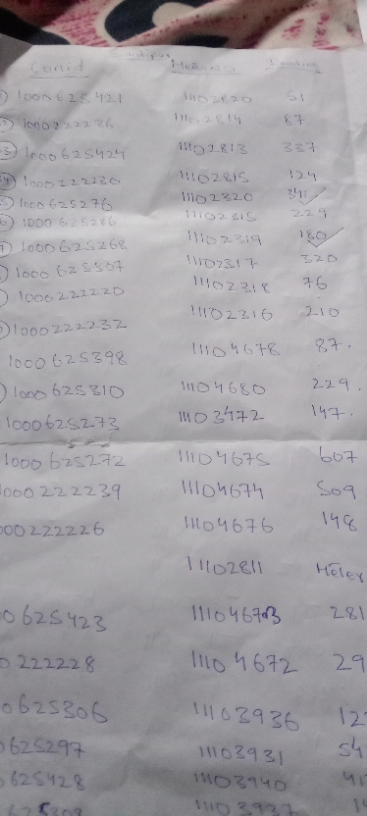 Conid Meter No Reading
1000625421 11102820 51
1000222236 11102814 87
1000625424 11102813 337
1000222230 11102815 124
1000625276 11102320 341
1000625286 11102315 229
1000625268 11102319 180
1000625307 11102317 320
1000222220 11102318 76
1000222232 11102316 210
1000625398 11104678 87.
1000625310 11104680 229.
1000625273 11103472 147.
1000625272 11104675 607
000222239 11104674 509
000222226 11104676 148
11102811 Meter
0625423 11104673 281
0222228 11104672 29
0625306 11103936 12
625297 11103931 54
625428 11103940
625303 11103937